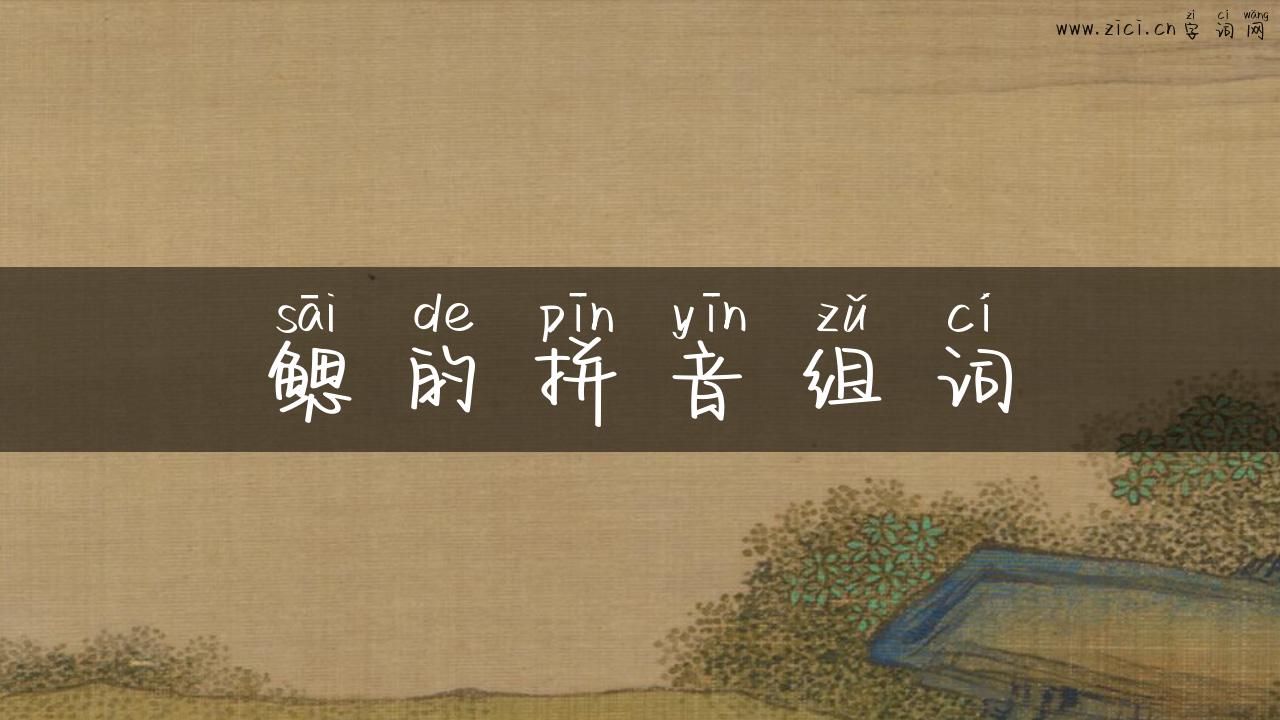 zì cí wǎng
www.zici.cn 字词网
sāi de pīn yīn zǔ cí
鳃的拼音组词